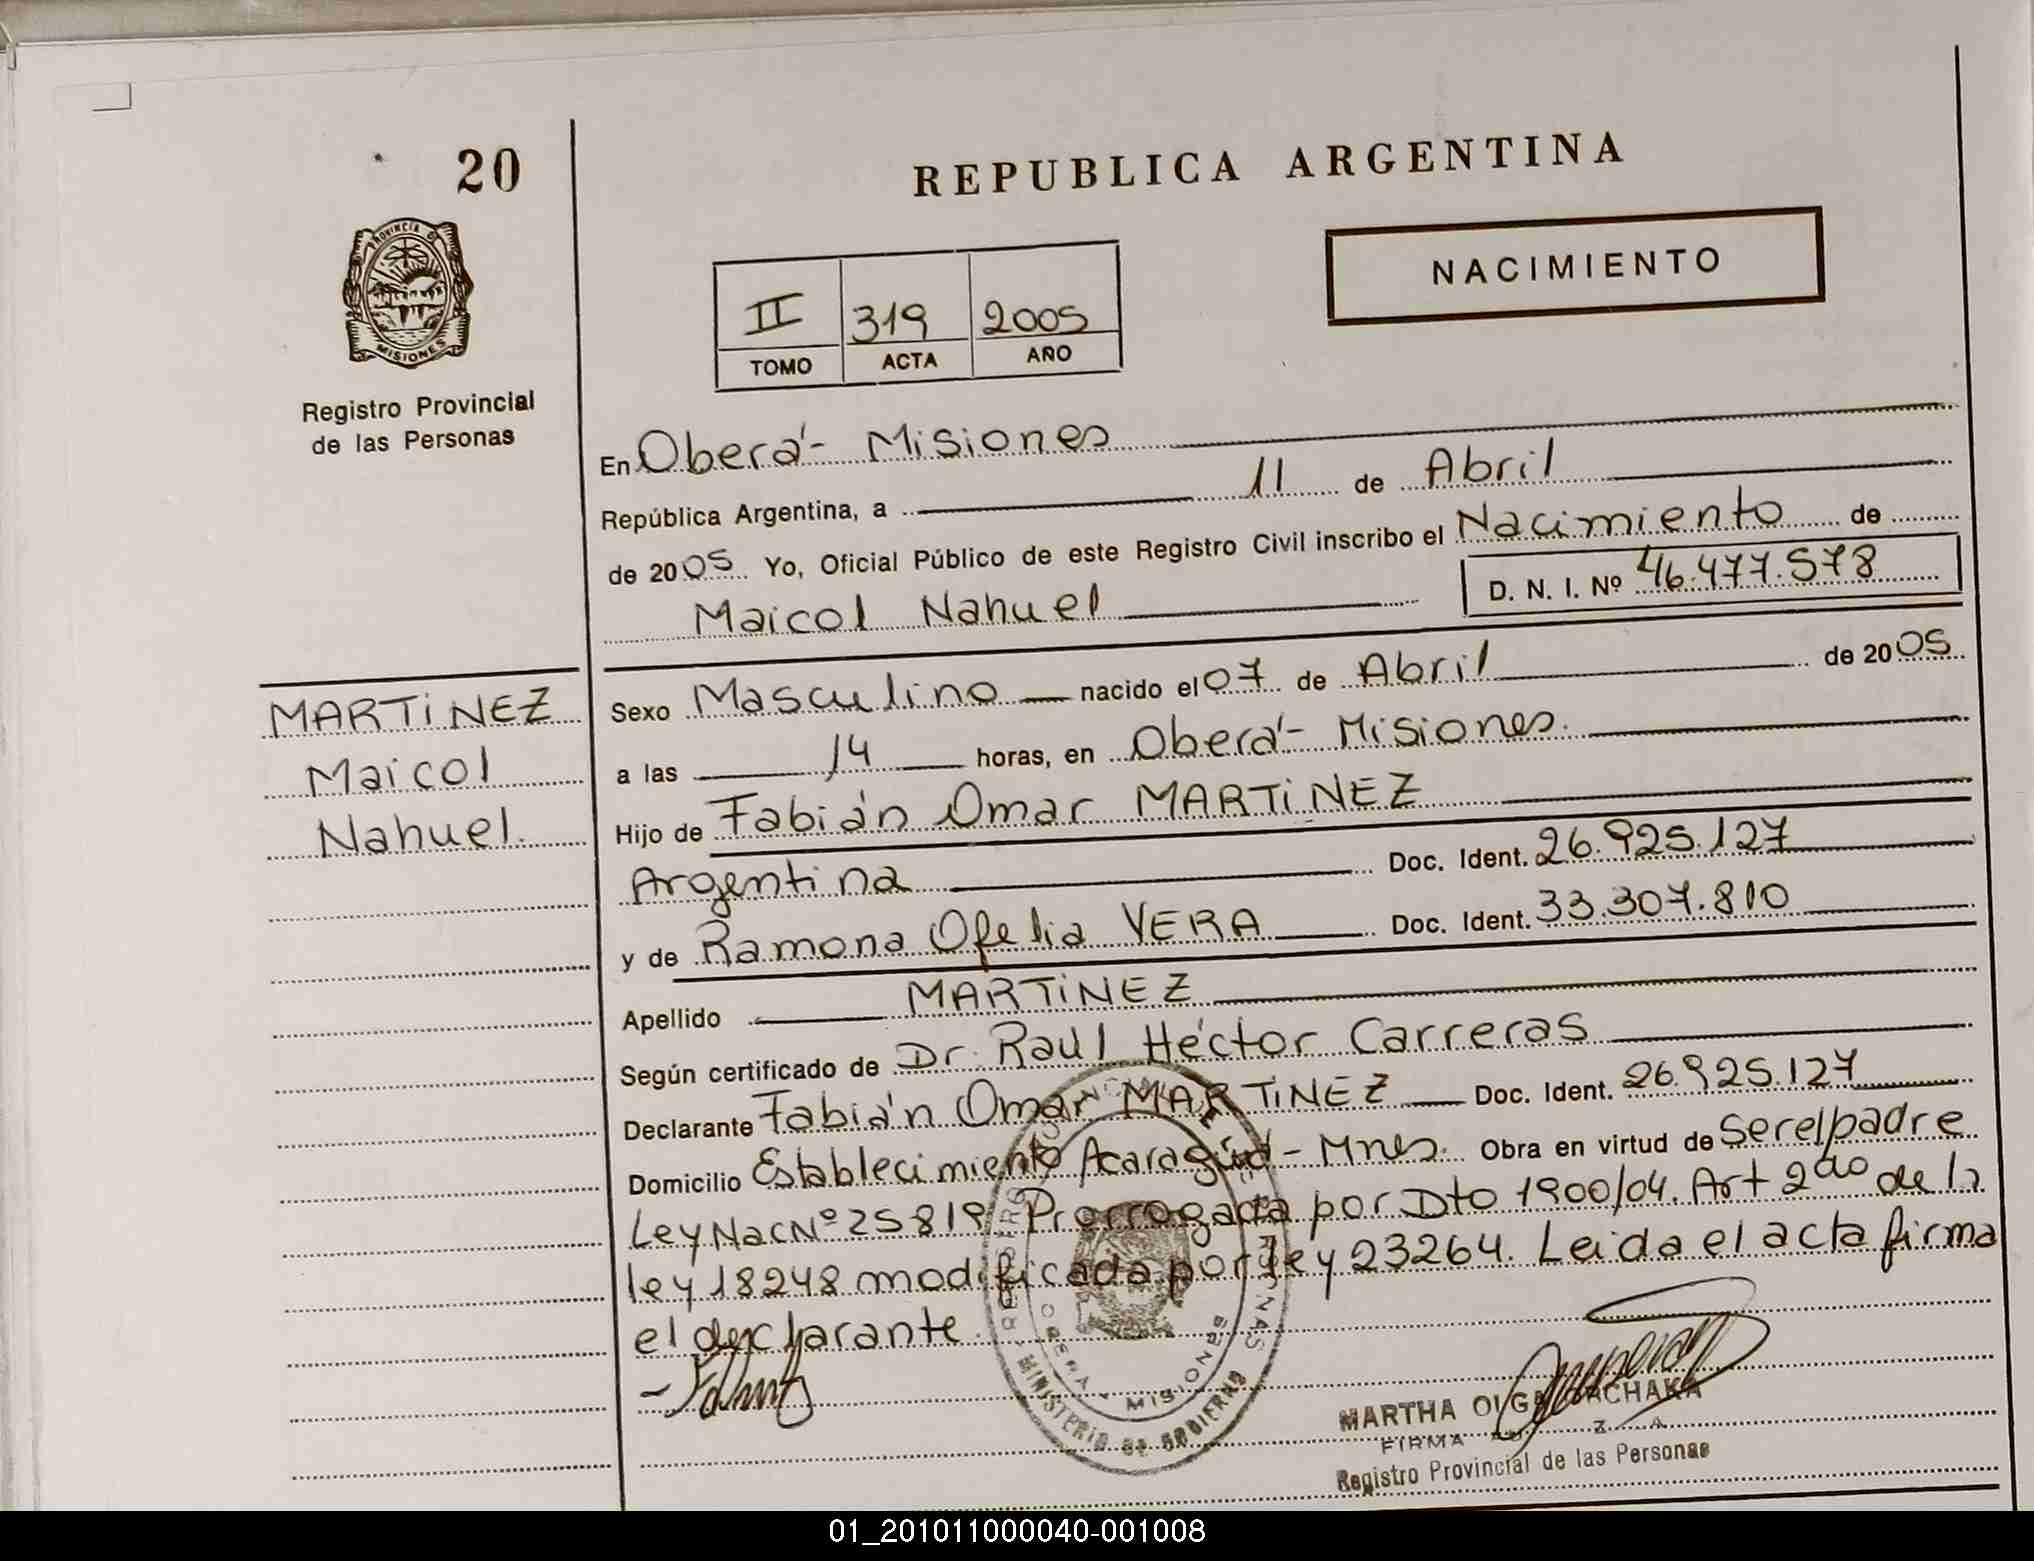 20
REPUBLICA ARGENTINA
NACIMIENTO
PROVINCIA DE
MISIONES
II 319 2005
TOMO ACTA AÑO
Registro Provincial
de las Personas
En Oberá - Misiones
República Argentina, a 11 de Abril
de 2005 Yo, Oficial Público de este Registro Civil inscribo el Nacimiento de
Maicol Nahuel D. N. I. Nº 46.477.578
MARTiNEZ
Maicol
Nahuel.
Sexo Masculino nacido el 07 de Abril de 2005
a las 14 horas, en Oberá - Misiones.
Hijo de Fabián Omar MARTiNEZ
Argentina Doc. Ident. 26.925.127
y de Ramona Ofelia VERA Doc. Ident. 33.307.810
Apellido MARTiNEZ
Según certificado de Dr. Raúl Héctor Carreras
Declarante Fabián Omar MARTiNEZ Doc. Ident. 26.925.127
Domicilio Establecimiento Acaragúa - Mnes. Obra en virtud de Ser el padre
Ley Nac Nº 25819 Prorrogada por Dto 1900/04. Art 2do de la
ley 18248 modificada por ley 23264. Leida el acta firma
el declarante.
MINISTERIO DE GOBIERNO
OBERA MISIONES
MARTHA OLGA
FIRMA
Registro Provincial de las Personas
01_201011000040-001008